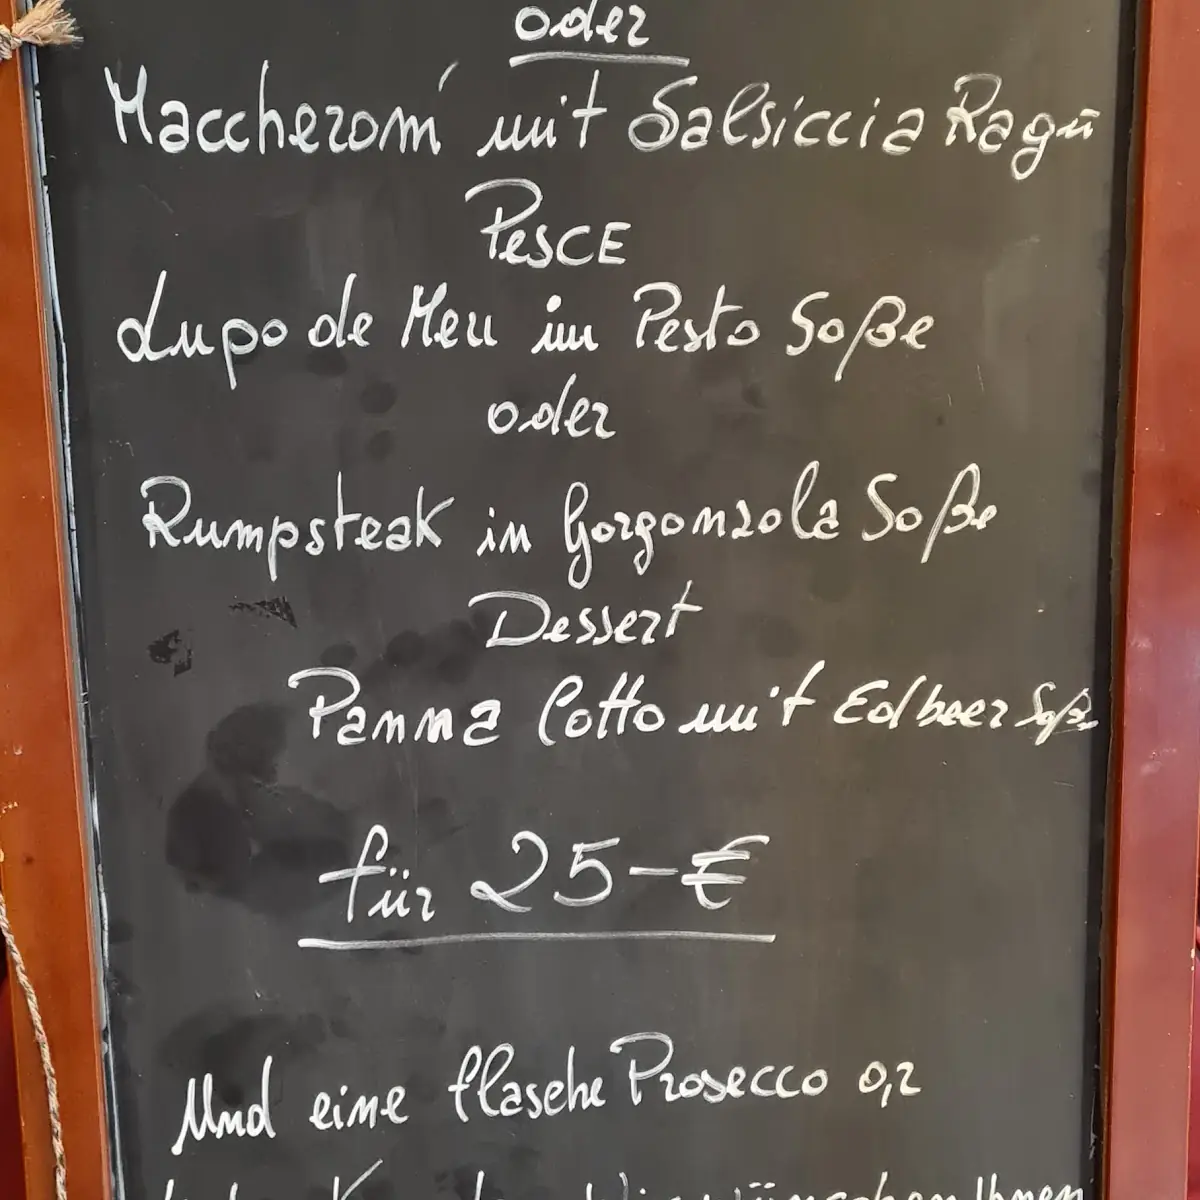 oder
Maccheroni mit Salsiccia Ragū
PESCE
Lupo de Meu im Pesto Soße
oder
Rumpsteak in Gorgonzola Soße
Dessert
Panna Cotto mit Edbeer Soße
für 25-€
Und eine flasche Prosecco 0,2
wünschen Ihnen